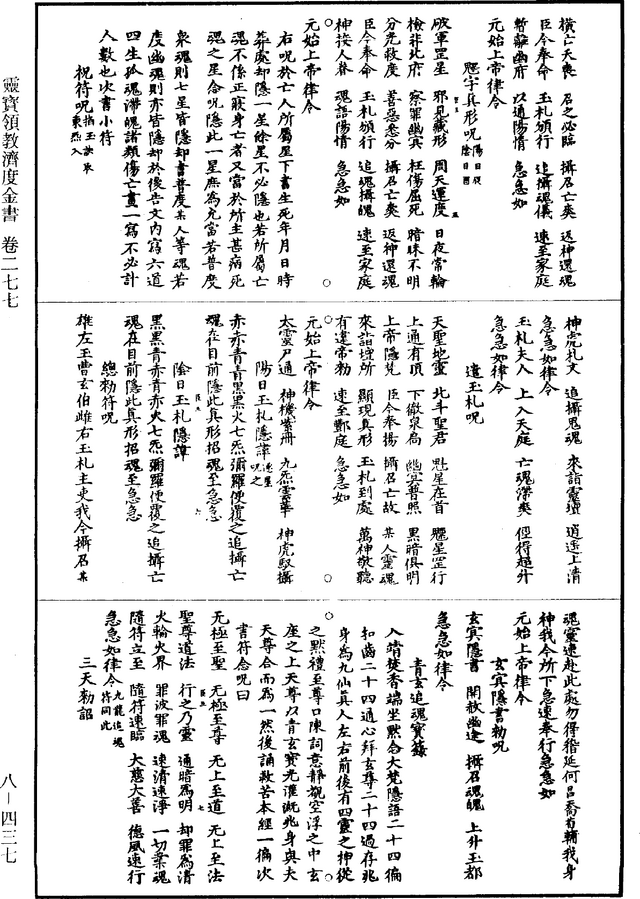 橫亡夭喪　召之必臨　攝召亡爽　返神還魂
臣今奉命　玉札頒行　追攝魂儀　速至家庭
暫離幽府　以通陽情　急急如
元始上帝律令
魒字真形呪
破軍罡星　邪見藏形　周天運度　日夜常輪
檢非北府　察罪幽冥　枉傷屈死　暗昧不明
分充救度　善惡悉分　攝召亡爽　返神還魂
臣今奉命　玉札頒行　追魂攝魄　速至家庭
神接人眷　魂語陽情　急急如
元始上帝律令
右呪於亡人所屬星下書生死年月日時
葬處却隱一星餘星不必隱也若所屬亡
魂不係正寢身亡者又當於所主甚病死
魂之星合呪隱此一星庶為允當若普度
衆魂則七星皆隱却書普度某人等魂若
度幽魂則亦皆隱却於後告文內寫六道
四生孤魂滯魄諸類傷亡畫一寫不必計
人數也次書小符
祝符呪
神虎札文　追攝鬼魂　來詣靈壇　逍遙上清
急急如律令
玉札夫人　上入天庭　亡魂滯爽　徑得超升
急急如律令
遣玉札呪
天聖地靈　北斗聖君　魁星在首　魒星罡行
上通有頂　下徹泉扃　幽冥普照　黑暗俱明
上帝隱梵　臣今奉揚　攝召亡故　某人靈魂
來詣壇所　顯現真形　玉札到處　萬神敬聽
有違常勑　速至酆庭　急急如
元始上帝律令
太靈尸通　神機紫冊　九炁雲華　神虎馭攝
陽日玉札隱諱
赤赤青青黑黑火七炁彌羅便覆之追攝亡
魂在目前隱此真形招魂至急急
陰日玉札隱諱
黑黑青赤青赤火七炁彌羅便覆之追攝亡
魂在目前隱此真形招魂至急急
總勑符呪
雄左玉曹玄伯雌右玉札主吏我今攝召某
魂靈速赴此處勿得稽延何呂喬荀輔我身
神我今所下急速奉行急急如
元始上帝律令
玄冥隱書勑呪
玄冥隱書　開赦幽途　攝召魂魄　上升玉都
急急如律令
青玄追魂寶籙
入靖焚香端坐默念大梵隱語二十四徧
扣齒二十四通心拜玄尊二十四過存兆
身為九仙真人左右前後有四靈之神從
之默禮至尊口陳詞意靜覩空浮之中玄
座之上天尊以青玄寶光灌漑兆身與夫
天尊合而為一然後誦救苦本經一徧次
書符念呪曰
无極至聖　无極至尊　无上至道　无上至法
聖尊道法　行之乃靈　通暗為明　却罪為清
火輪火界　罪波罪魂　速清速淨　一切衆魂
隨符立至　隨符速臨　大慈大善　德風速行
急急如律令九龍追魂符同此
三天勑詔
靈寶領教濟度金書　卷二七七
八－四三七